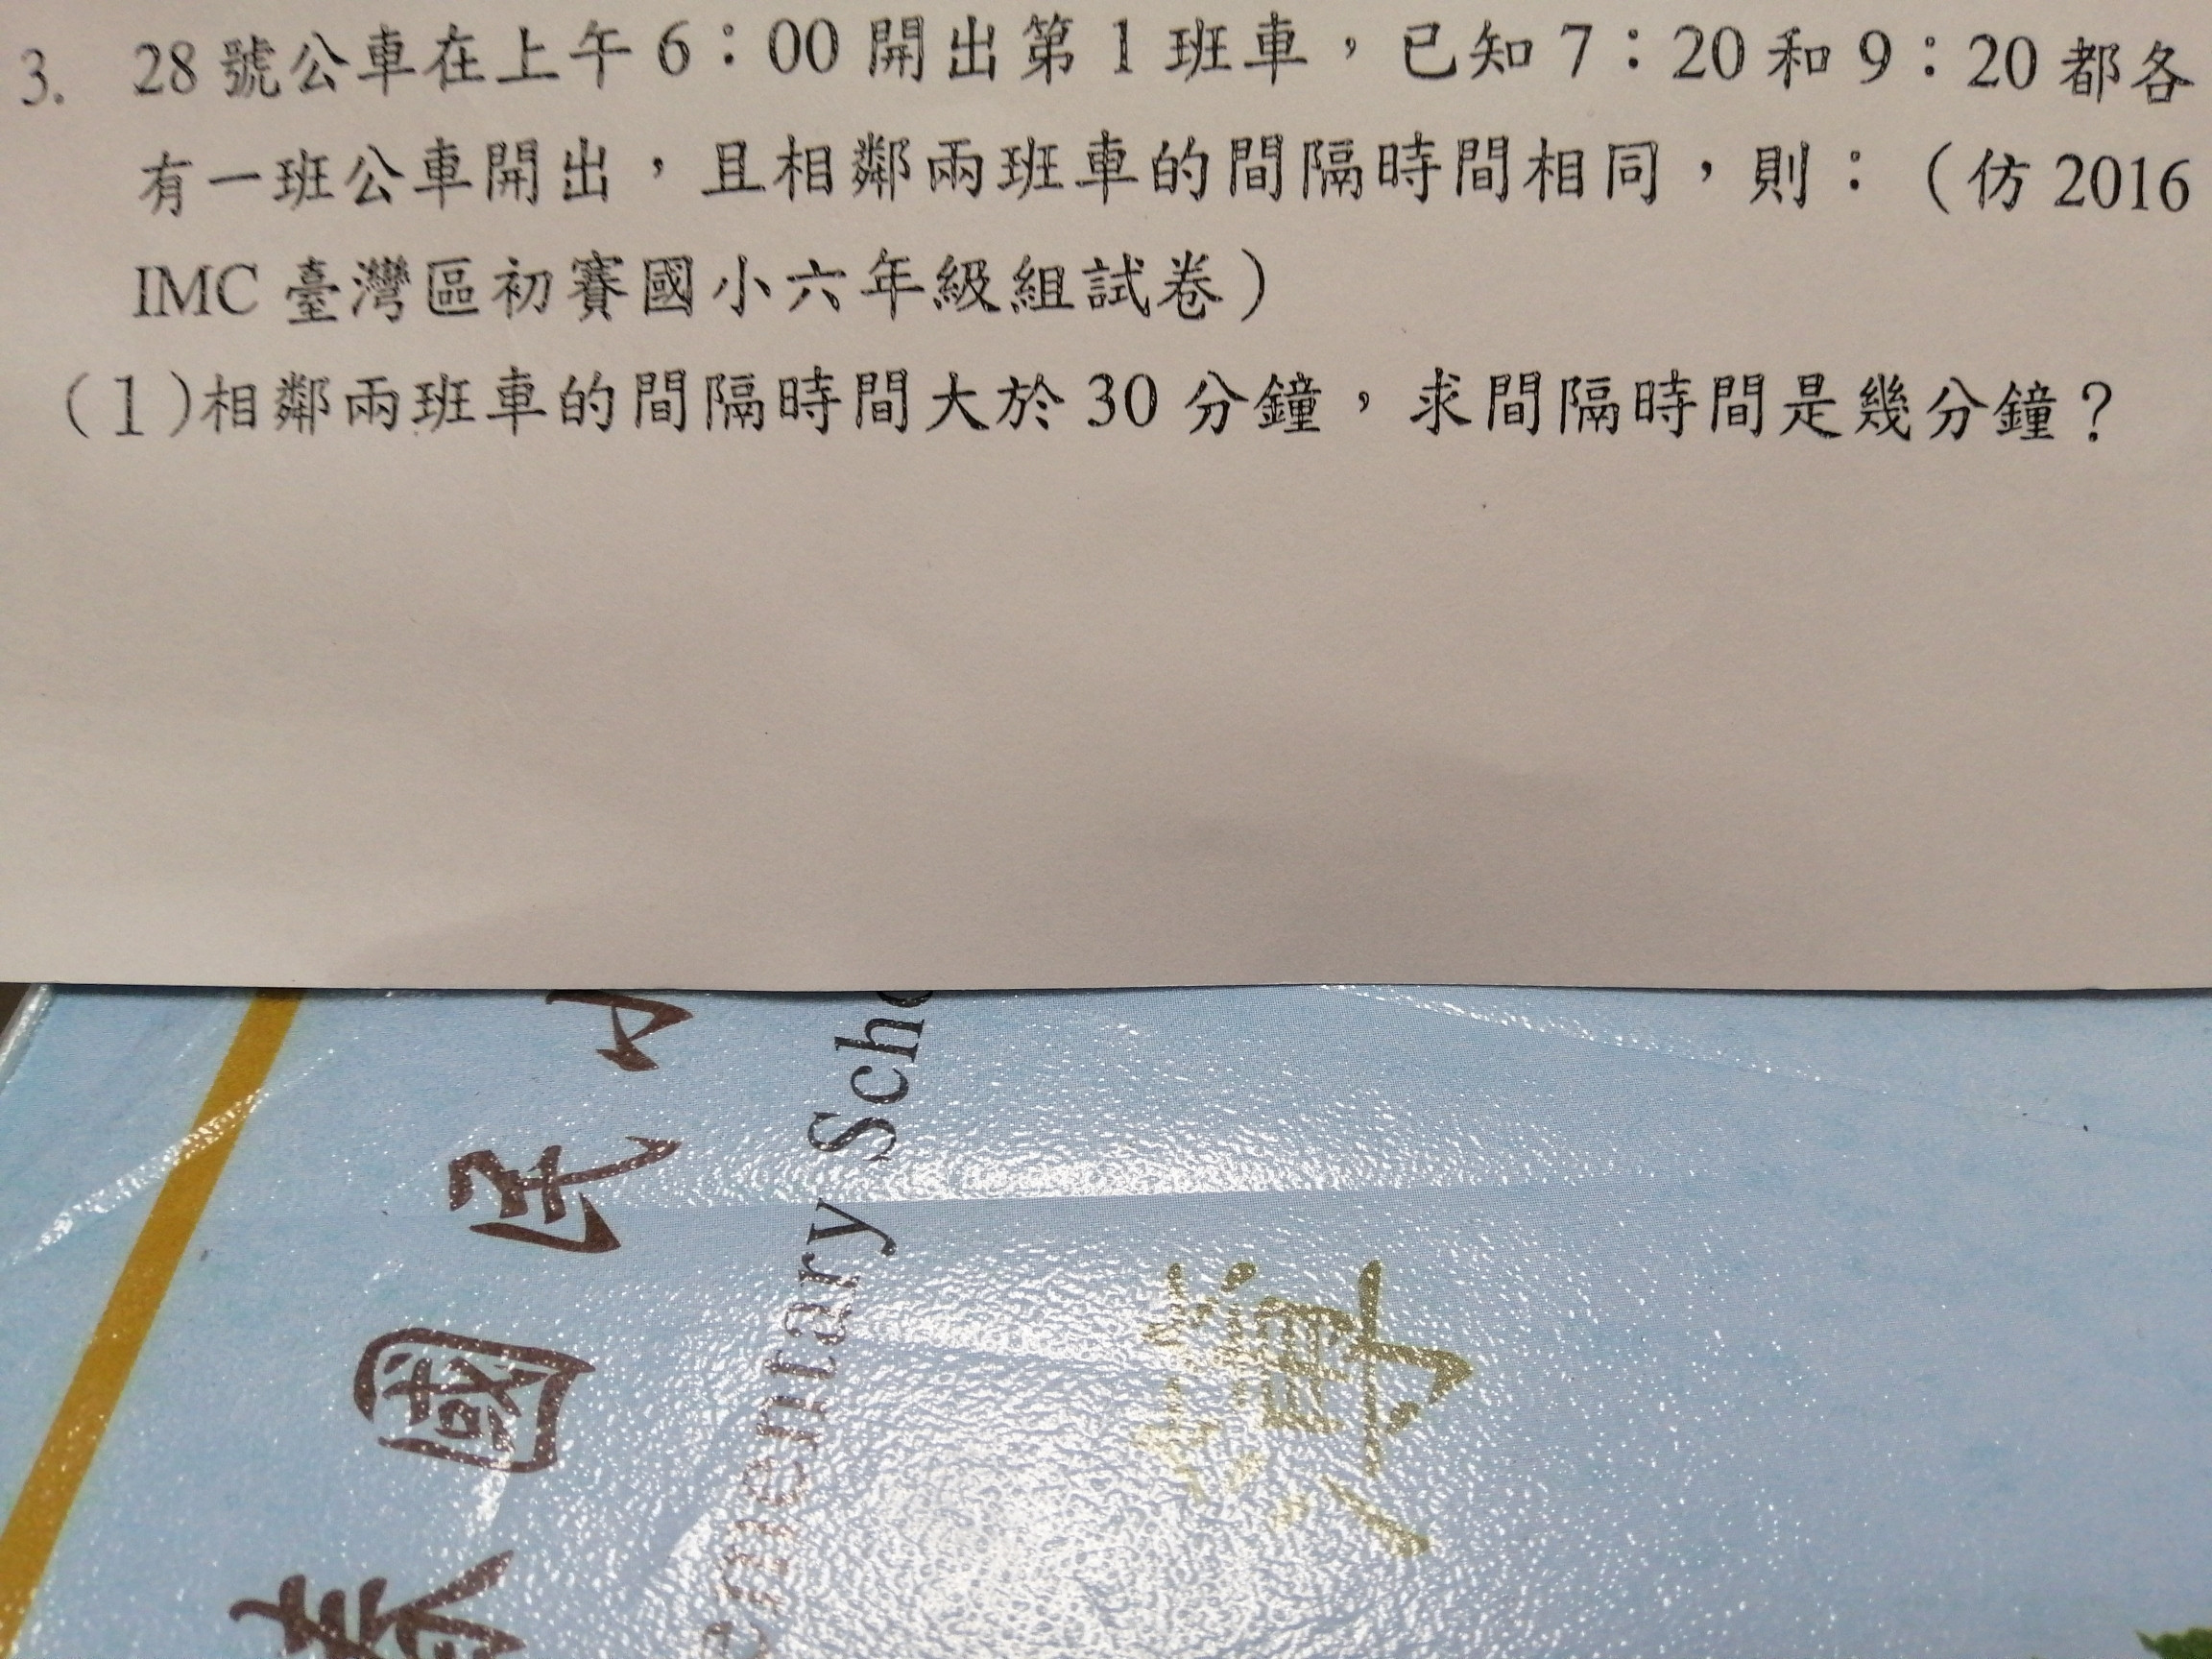 3. 28 號公車在上午 6：00 開出第 1 班車，已知 7：20 和 9：20 都各
有一班公車開出，且相鄰兩班車的間隔時間相同，則：（仿 2016
IMC 臺灣區初賽國小六年級組試卷）
（1）相鄰兩班車的間隔時間大於 30 分鐘，求間隔時間是幾分鐘？
國民小
ementary Scho